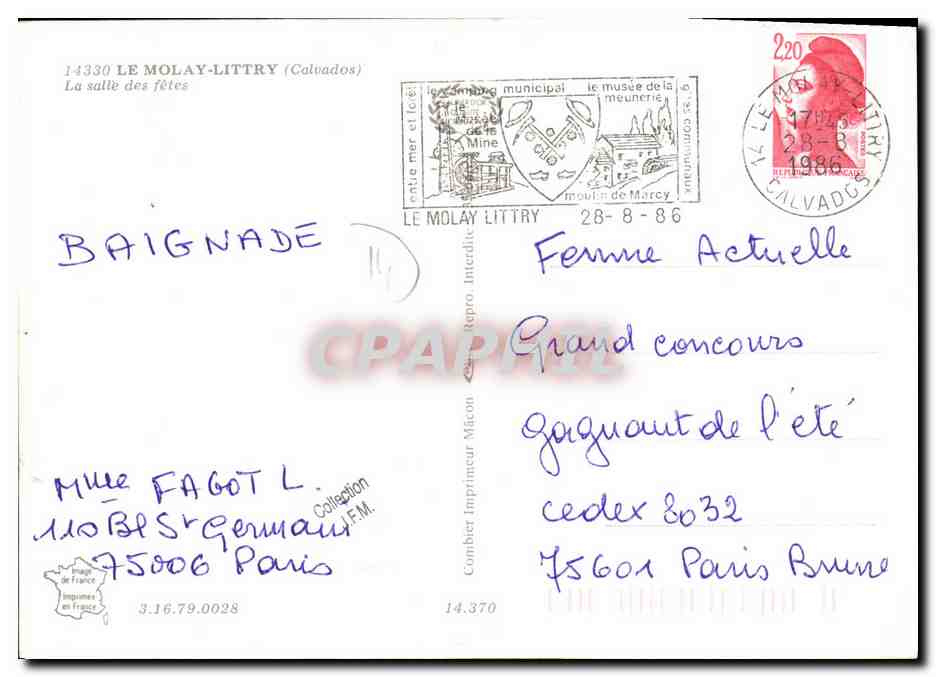 14330 LE MOLAY-LITTRY (Calvados)
La salle des fêtes
entre mer et forêt
le camping municipal
le musée de la meunerie
de la
Mine
moulin de Marcy
LE MOLAY LITTRY 28-8-86
2,20
14 LE MOLAY-LITTRY
17H45
28-8
1986
CALVADOS
BAIGNADE
Femme Actuelle
Grand concours
gagnant de l'été
cedex 8032
75601 Paris Brune
CPAPHIL
Mme FAGOT L.
110 Bd St Germain
75006 Paris
Collection
I.F.M.
Combier Imprimeur Mâcon
Repro. Interdite
Image
de France
Imprimée
en France
3.16.79.0028
14.370